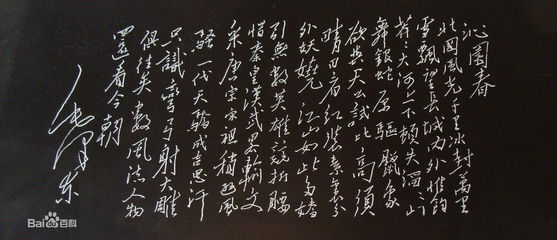 沁园春
北国风光千里冰封万里
雪飘望长城内外惟余
莽々大河上下顿失滔々山
舞银蛇原驱腊象
欲与天公试比高须
晴日看红装素裹分
外妖娆江山如此多娇
引无数英雄竞折腰
惜秦皇汉武略输文
采唐宗宋祖稍逊风
骚一代天骄成吉思汗
只识弯弓射大雕
俱往矣数风流人物
還看今朝
毛泽东
Bai百科